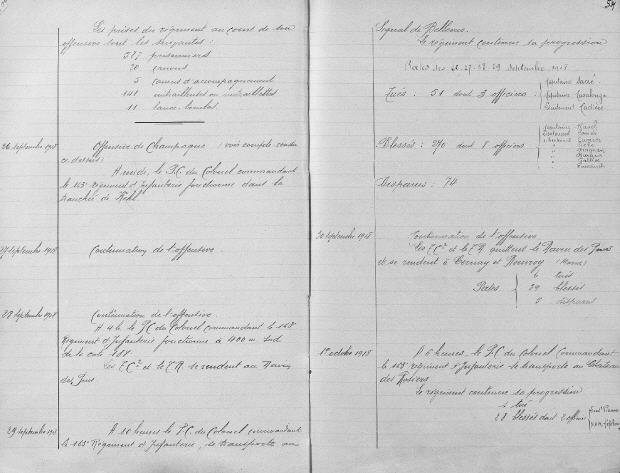 Les prises du régiment au cours de son
offensive sont les suivantes :
317 prisonniers
20 canons
5 canons d'accompagnement
141 mitrailleuses ou mitraillettes
11 lance-bombes
26 septembre 1918 Offensive de Champagne : voir compte rendu
ci dessus :
A midi, le P.C. du Colonel commandant
le 163e régiment d'Infanterie fonctionne dans la
tranchée de
27 septembre 1918 Continuation de l'offensive
28 septembre 1918 Continuation de l'offensive.
A 4 h le P.C. du Colonel commandant le 163e
Régiment d'Infanterie fonctionne à 400 m Sud
de la cote 188.
Les T.C.2 et le T.R. se rendent au Ravin
des Pins
29 septembre 1918 A 10 heures le P.C. du Colonel commandant
le 163e Régiment d'Infanterie, se transporte au
54
Signal de Bellevue.
Le régiment continue sa progression
Pertes des 26-27-28-29 Septembre 1918
Tués : 51 dont 3 officiers :
Blessés : 270 dont 8 officiers
Disparus : 74
30 septembre 1918 Continuation de l'offensive
Les T.C.2 et le T.R. quittent le Ravin des Pins
et se rendent à Cernay et Rouvroy (Marne)
6 tués
Pertes 29 blessés
5 disparus
1er octobre 1918 A 6 heures, le P.C. du Colonel Commandant
le 163e régiment d'Infanterie se transporte au
des Rosiers
Le régiment continue sa progression
tué
28 blessés dont 2 officiers